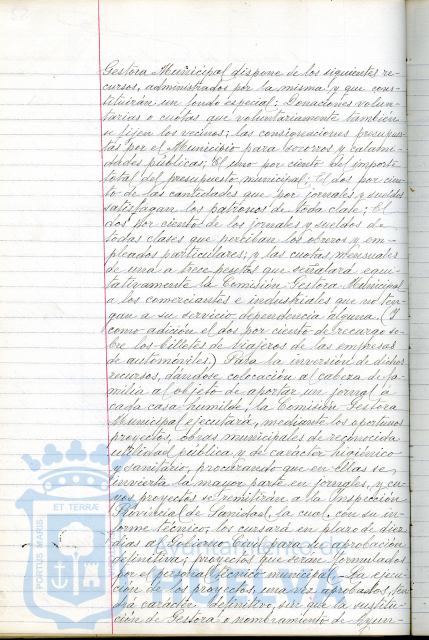 Gestora Municipal dispone de los siguientes re-
cursos, administrados por la misma y que cons-
tituirán un fondo especial: Donaciones volun-
tarias o cuotas que voluntariamente también
se fijen los vecinos; las consignaciones presupues-
tas por el Municipio para socorros y calami-
dades públicas; El uno por ciento del importe
total del presupuesto municipal; El dos por cien-
to de las cantidades que por jornales y sueldos
satisfagan los patronos de toda clase; El
dos por ciento de los jornales y sueldos de
todas clases que perciban los obreros y em-
pleados particulares; y las cuotas mensuales
de una a trece pesetas que señalará equi-
tativamente la Comisión Gestora Municipal
a los comerciantes e industriales que no ten-
gan a su servicio dependencia alguna. (Y
como adición el dos por ciento de recargo so-
bre los billetes de viajeros de las empresas
de automóviles.) Para la inversión de dichos
recursos, dándose colocación al cabeza de fa-
milia al objeto de aportar un jornal a
cada casa humilde, la Comisión Gestora
Municipal ejecutará, mediante los oportunos
proyectos, obras municipales de reconocida
utilidad pública y de carácter higiénico
y sanitario, procurando que en ellas se
invierta la mayor parte en jornales, y cu-
yos proyectos se remitirán a la Inspección
Provincial de Sanidad, la cual, con su in-
forme técnico, los cursará en plazo de diez
días al Gobierno Civil para su aprobación
definitiva; proyectos que serán formulados
por el personal técnico municipal. La ejecu-
ción de los proyectos, una vez aprobados, ten-
drá carácter definitivo, sin que la sustitu-
ción de Gestora o nombramiento de Ayun-
ET TERRAE
PORTUS MARIS
Ayuntamiento de